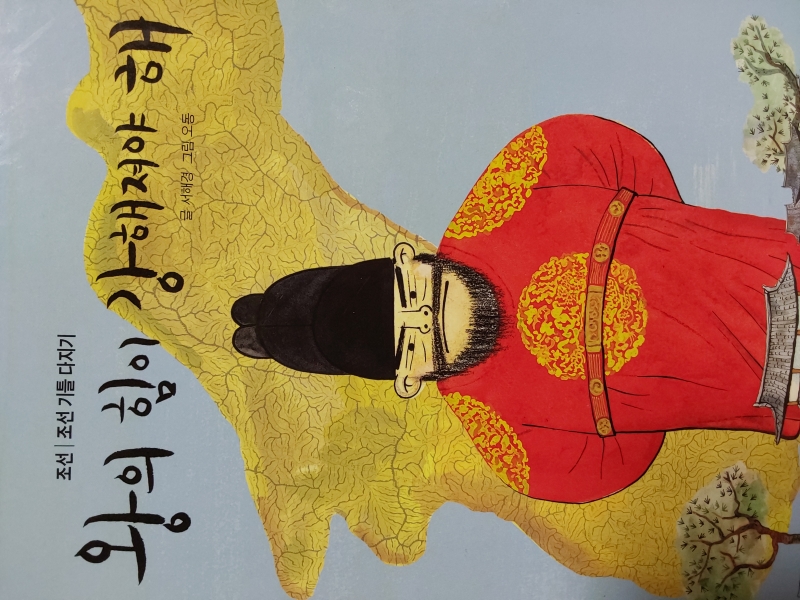 조선 | 조선 기틀 다지기
왕의 힘이 강해져야 해
글 서해경 그림 오동